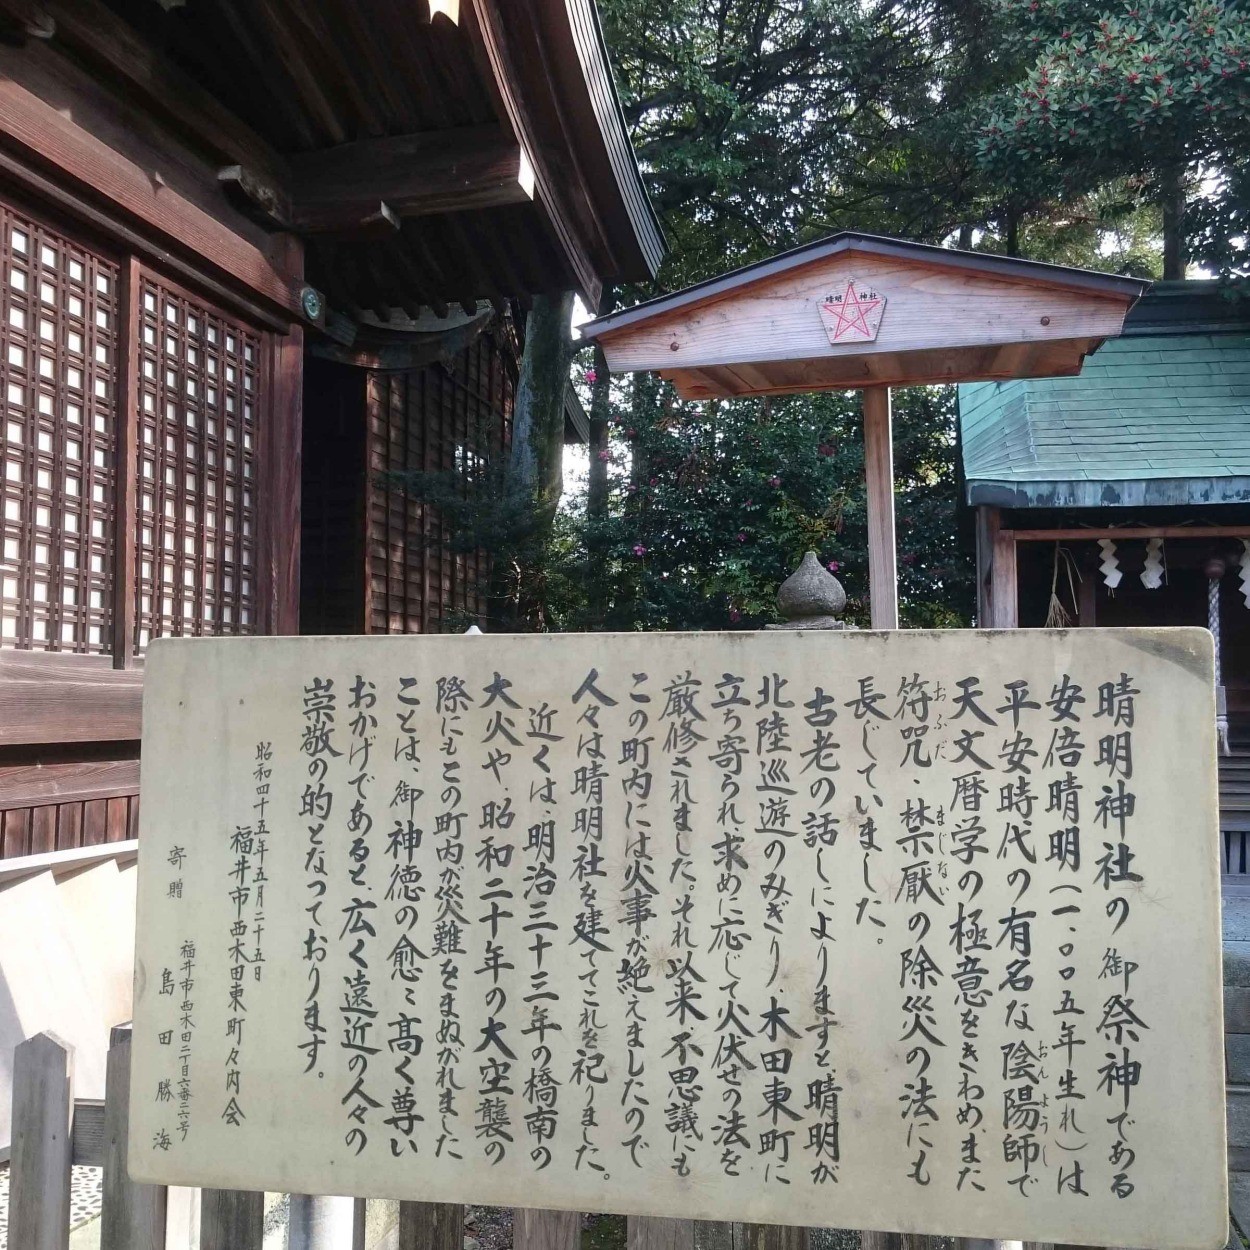 晴明 神社
晴明神社の御祭神である
安倍晴明(一、〇〇五年生れ)は
平安時代の有名な陰陽師で
おんようじ
天文暦学の極意をきわめ、また
符咒、禁厭の除災の法にも
おふだ まじない
長じていました。
古老の話しによりますと、晴明が
北陸巡遊のみぎり、木田東町に
立ち寄られ、求めに応じて火伏せの法を
厳修されました。それ以来、不思議にも
この町内には火事が絶えましたので
人々は晴明社を建ててこれを祀りました。
近くは、明治三十三年の橋南の
大火や、昭和二十年の大空襲の
際にもこの町内が災難をまぬがれました
ことは、御神徳の愈々高く尊い
おかげであると、広く遠近の人々の
崇敬の的となっております。
昭和四十五年五月二十五日
福井市西木田東町々内会
福井市西木田二丁目六番二六号
寄贈 島田勝海